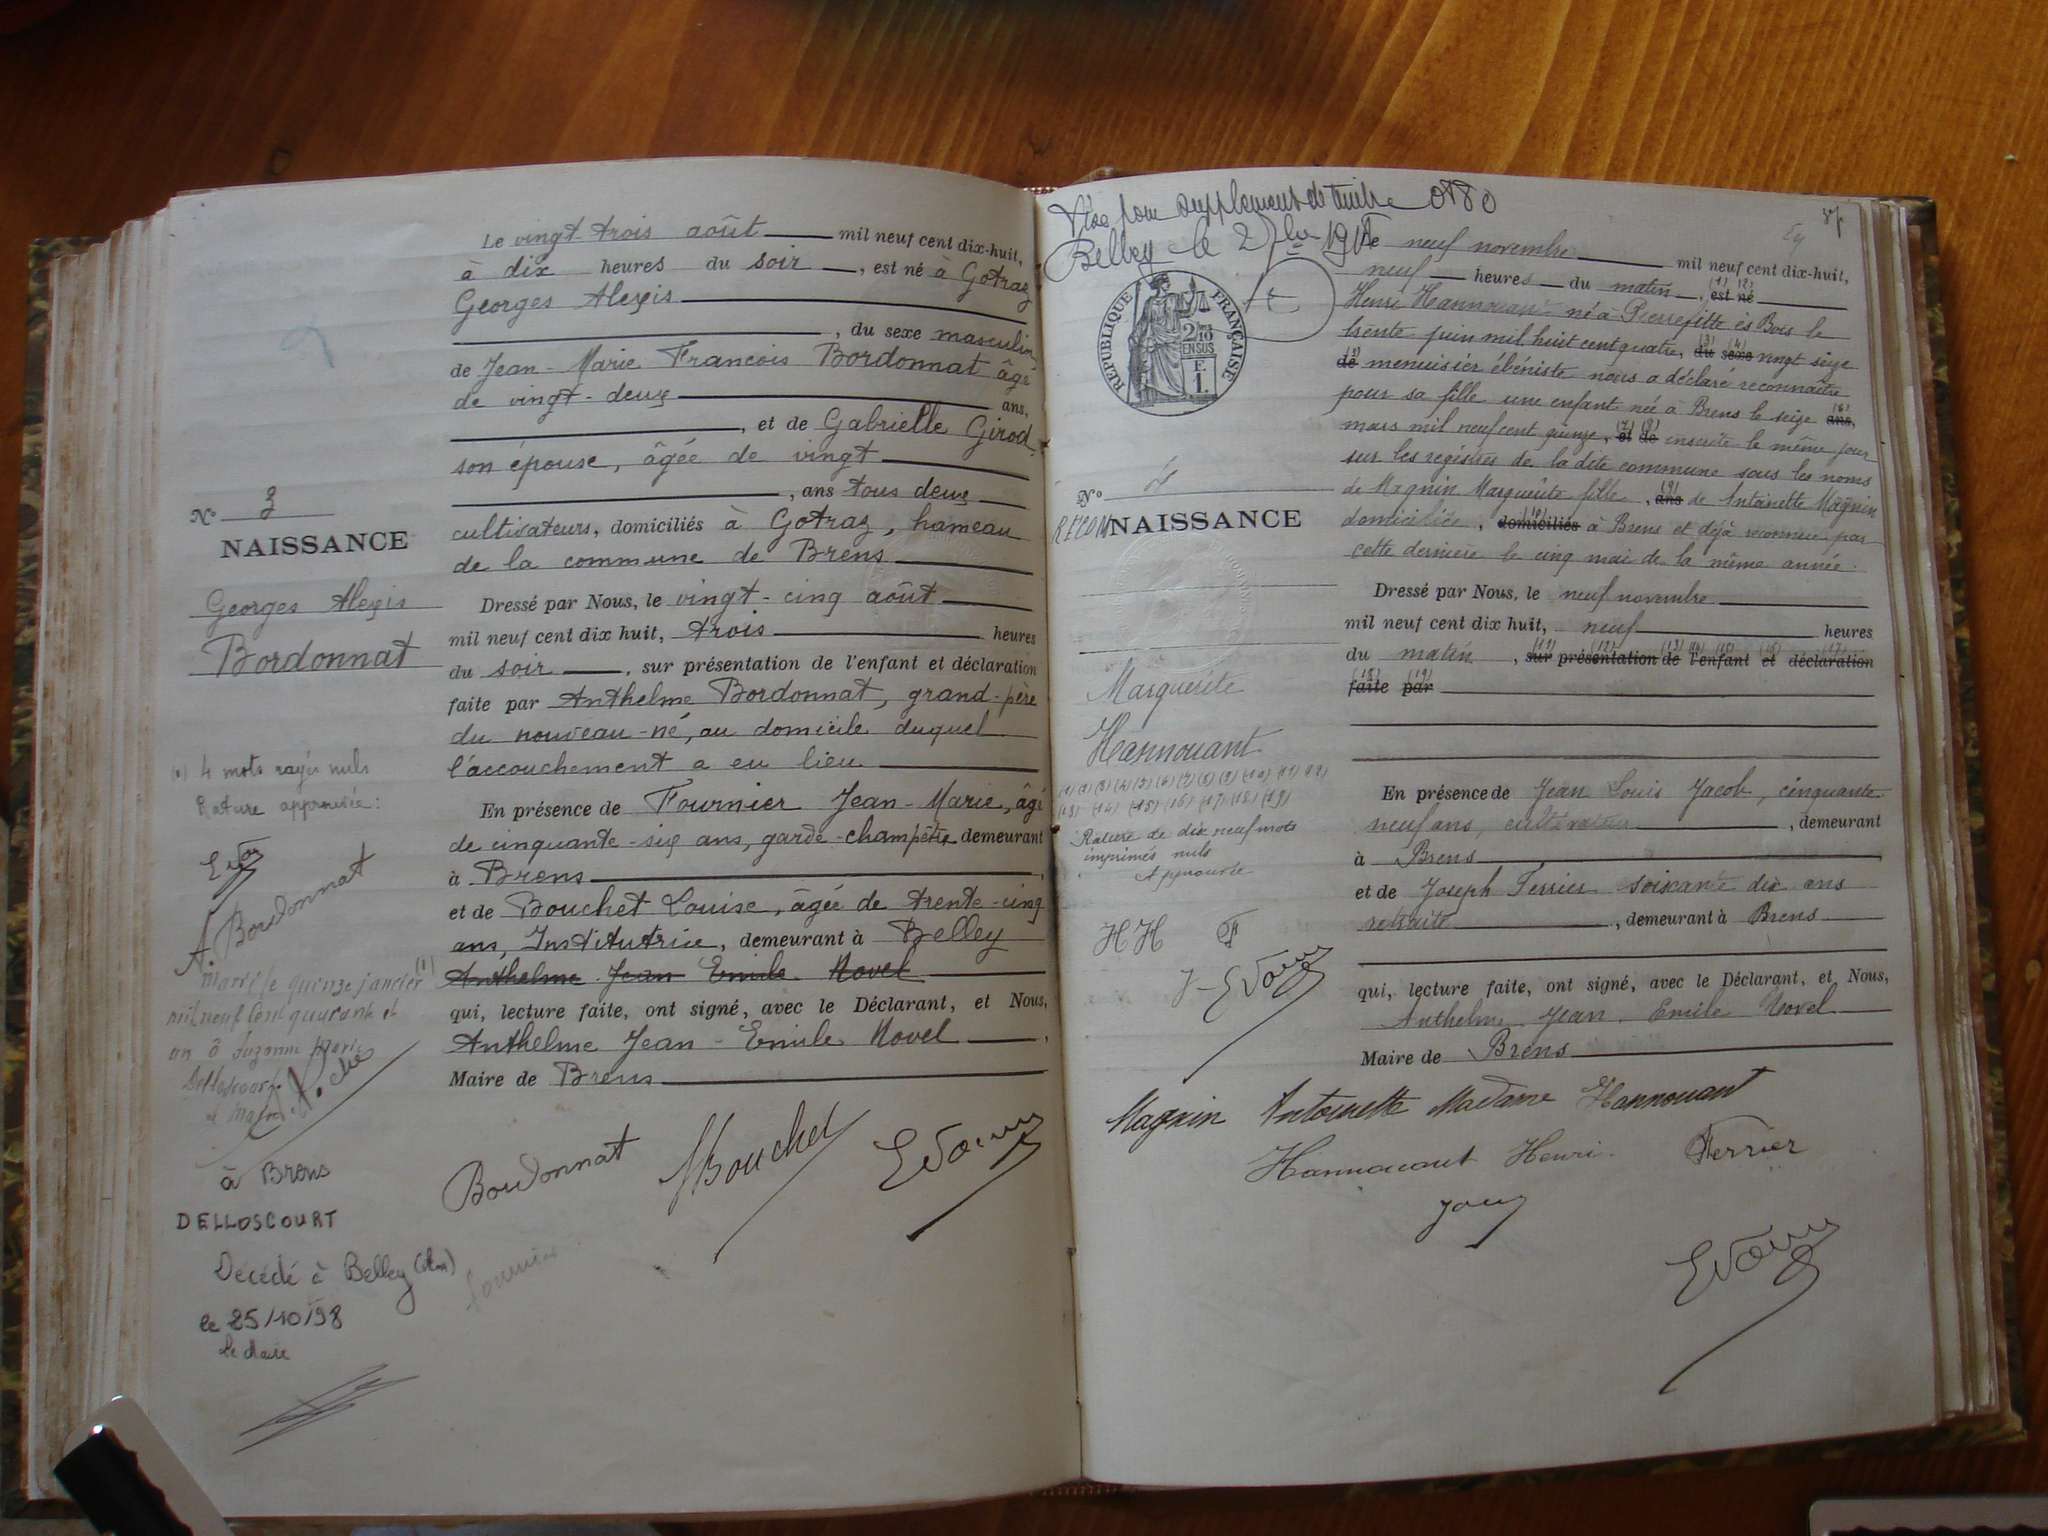 Le vingt-trois août mil neuf cent dix-huit,
à dix heures du soir, est né à Gotraz
Georges Alexis
, du sexe masculin
de Jean-Marie François Bordonnat âgé
de vingt-deux ans,
, et de Gabrielle Girod,
son épouse, âgée de vingt
, ans tous deux
cultivateurs, domiciliés à Gotraz, hameau
de la commune de Brens
Dressé par Nous, le vingt-cinq août
mil neuf cent dix huit, trois heures
du soir, sur présentation de l'enfant et déclaration
faite par Anthelme Bordonnat, grand-père
du nouveau-né, au domicile duquel
l'accouchement a eu lieu
En présence de Fournier Jean-Marie, âgé
de cinquante-six ans, garde-champêtre, demeurant
à Brens,
et de Bouchet Louise, âgée de trente-cinq
ans, Institutrice, demeurant à Belley
(1) Anthelme Jean Emile Novel
qui, lecture faite, ont signé, avec le Déclarant, et Nous,
Anthelme Jean-Emile Novel,
Maire de Brens
Bordonnat Bouchet
Fournier
N° 3
NAISSANCE
Georges Alexis
Bordonnat
(1) 4 mots rayés nuls
Rature approuvée:
A. Bordonnat
marri le quinze janvier
mil neuf cent quarante et
un à Suzanne Marie
Delloscourt
le Maire
à Brens
DELLOSCOURT
Décédé à Belley (Ain)
le 25/10/98
le Maire
Visé pour supplément de timbre 0f80
Belley le
RÉPUBLIQUE FRANÇAISE
2/10
EN SUS
F.
1.
N°
RECON NAISSANCE
Marguerite
Hannouant
(1) (2) (3) (4) (5) (6) (7) (8) (9) (10) (11) (12)
(13) (14) (15) (16) (17) (18) (19)
Rature de dix neuf mots
imprimés nuls
Approuvée
HH F
Le neuf novembre mil neuf cent dix-huit,
neuf heures du matin, (1) est (2) né
Henri Hannouant né à Pierrefitte ès Bois le
trente juin mil huit cent quatre, (3) du (4) sexe vingt seize
(5) de menuisier ébéniste nous a déclaré reconnaître
pour sa fille une enfant née à Brens le seize (6) ans,
mars mil neuf cent quinze, (7) et (8) de inscrite le même jour
sur les registres de la dite commune sous les noms
de Magnin Marguerite fille, (9) ans de Antoinette Magnin
domiciliée, (10) domiciliés à Brens et déjà reconnue par
cette dernière le cinq mai de la même année.
Dressé par Nous, le neuf novembre
mil neuf cent dix huit, neuf heures
du matin, (11) sur (12) présentation (13) de (14) (15) l'enfant (16) et (17) déclaration
(18) faite (19) par
En présence de Jean Louis Jacob, cinquante
neuf ans, cultivateur, demeurant
à Brens
et de Joseph Ferrier soixante dix ans
retraité, demeurant à Brens
qui, lecture faite, ont signé, avec le Déclarant, et Nous,
Anthelme Jean Emile Novel
Maire de Brens
Magnin Antoinette Madame Hannouant
Hannouant Henri Ferrier